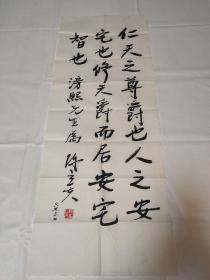 仁天之尊爵也人之安
宅也修天爵而居安宅
智也
滂熙先生属 陈立夫